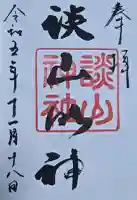 奉拝
談山
神
談山
神社
令和五年十一月十八日